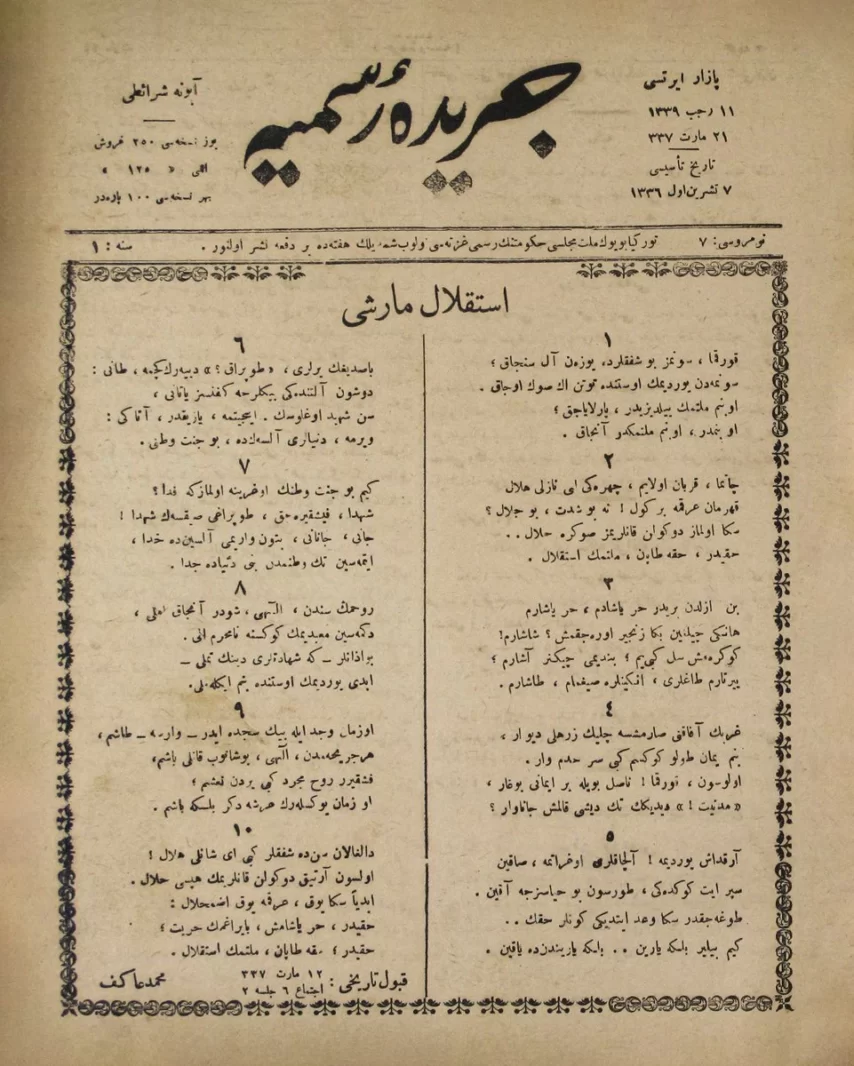 جريدۀ رسميه
پازار ايرتسى
١١ رجب ١٣٣٩
٢١ مارت ٣٣٧
تاريخ تأسيسى
٧ تشرين اول ١٣٣٦
آبونه شرائطى
يوز نسخه‌سى ٢٥٠ غروش
اللى » ١٢٥ »
بهر نسخه‌سى ١٠٠ پاره‌در
نومروسى: ٧ توركيا بويوك ملت مجلسى حكومتنك رسمى غزته‌سى اولوب شمديلك هفته‌ده بر دفعه نشر اولنور . سنه : ١
استقلال مارشى
١
قورقما ، سونمز بو شفقلرده يوزن آل سنجاق ؛
سونمه‌دن يورديمك اوستنده توتن اك صوك اوجاق .
او بنم ملتمك ييلديزيدر ، پارلاياجق ؛
او بنمدر ، او بنم ملتمكدر آنجاق .
٢
چاتما ، قربان اولايم ، چهره‌كى اى نازلى هلال
قهرمان عرقمه بر كول ! نه بو شدت ، بو جلال ؟
سكا اولماز دوكولن قانلريمز صوكره حلال . .
حقيدر ، حقه طاپان ، ملتمك استقلال .
٣
بن ازلدن بريدر حر ياشادم ، حر ياشارم
هانكى چيلغين بكا زنجير اوره‌جقمش ؟ شاشارم!
كوكره‌مش سل كبى‌يم ؛ بنديمى چيكنر آشارم ؛
ييرتارم طاغلرى ، انكينلره صيغمام ، طاشارم .
٤
غربك آفاقنى صارمشسه چليك زرهلى ديوار ،
بنم ايمان طولو كوكسم كبى سر حدم وار .
اولوسون ، قورقما ! ناصل بويله بر ايمانى بوغار ،
« مدنيت ! » ديديكك تك ديشى قالمش جاناوار ؟
٥
آرقداش يورديمه ! آلچاقلرى اوغراتمه ، صاقين
سپر ايت كوكده‌كى ، طورسون بو حياسزجه آقين .
طوغه‌جقدر سكا وعد ايتديكى كونلر حقك . .
كيم بيلير بلكه يارين . . بلكه ياريندن‌ده ياقين .
٦
باصديغك يرلرى ، «طوپراق ؟» دييه‌رك كچمه ، طانى :
دوشون آلتنده‌كى بيكلرجه كفنسز ياتانى ،
سن شهيد اوغلوسك . اينجيتمه ، يازيقدر ، آتاكى :
ويرمه ، دنيالرى آلسه‌كده ، بو جنت وطنى .
٧
كيم بو جنت وطنك اوغرينه اولمازكه فدا؟
شهدا ، فيشقيره‌جق ، طوپراغى صيقسه‌ك شهدا !
جانى ، جانانى ، بتون واريمى آلسين‌ده خدا ،
ايتمه‌سين تك وطنمدن بنى دنياده جدا .
٨
روحمك سندن ، الهى ، شودر آنجاق املى ،
دكمه‌سين معبديمك كوكسنه نامحرم الى .
بو اذانلر ــ كه شهادتلرى دينك تملى ــ
ابدى يورديمك اوستنده بنم ايكله‌ملى .
٩
او زمان وجد ايله بيك سجده ايدر ــ وارسه ــ طاشم ،
هر جريحه‌مدن ، الهى ، بوشانوب قانلى ياشم،
فيشقيرر روح مجرد كبى يردن نعشم ؛
او زمان يوكسله‌رك عرشه دكر بلكه باشم .
١٠
دالغالان سن‌ده شفقلر كبى اى شانلى هلال !
اولسون آرتيق دوكولن قانلريمك هپسى حلال .
ابدياً سكا يوق ، عرقمه يوق اضمحلال :
حقيدر ، حر ياشامش ، بايراغمك حريت ؛
حقيدر ؛ حقه طاپان ، ملتمك استقلال .
قبول تاريخى : ١٢ مارت ٣٣٧
اجتماع ٦ جلسه ٢
محمد عاكف